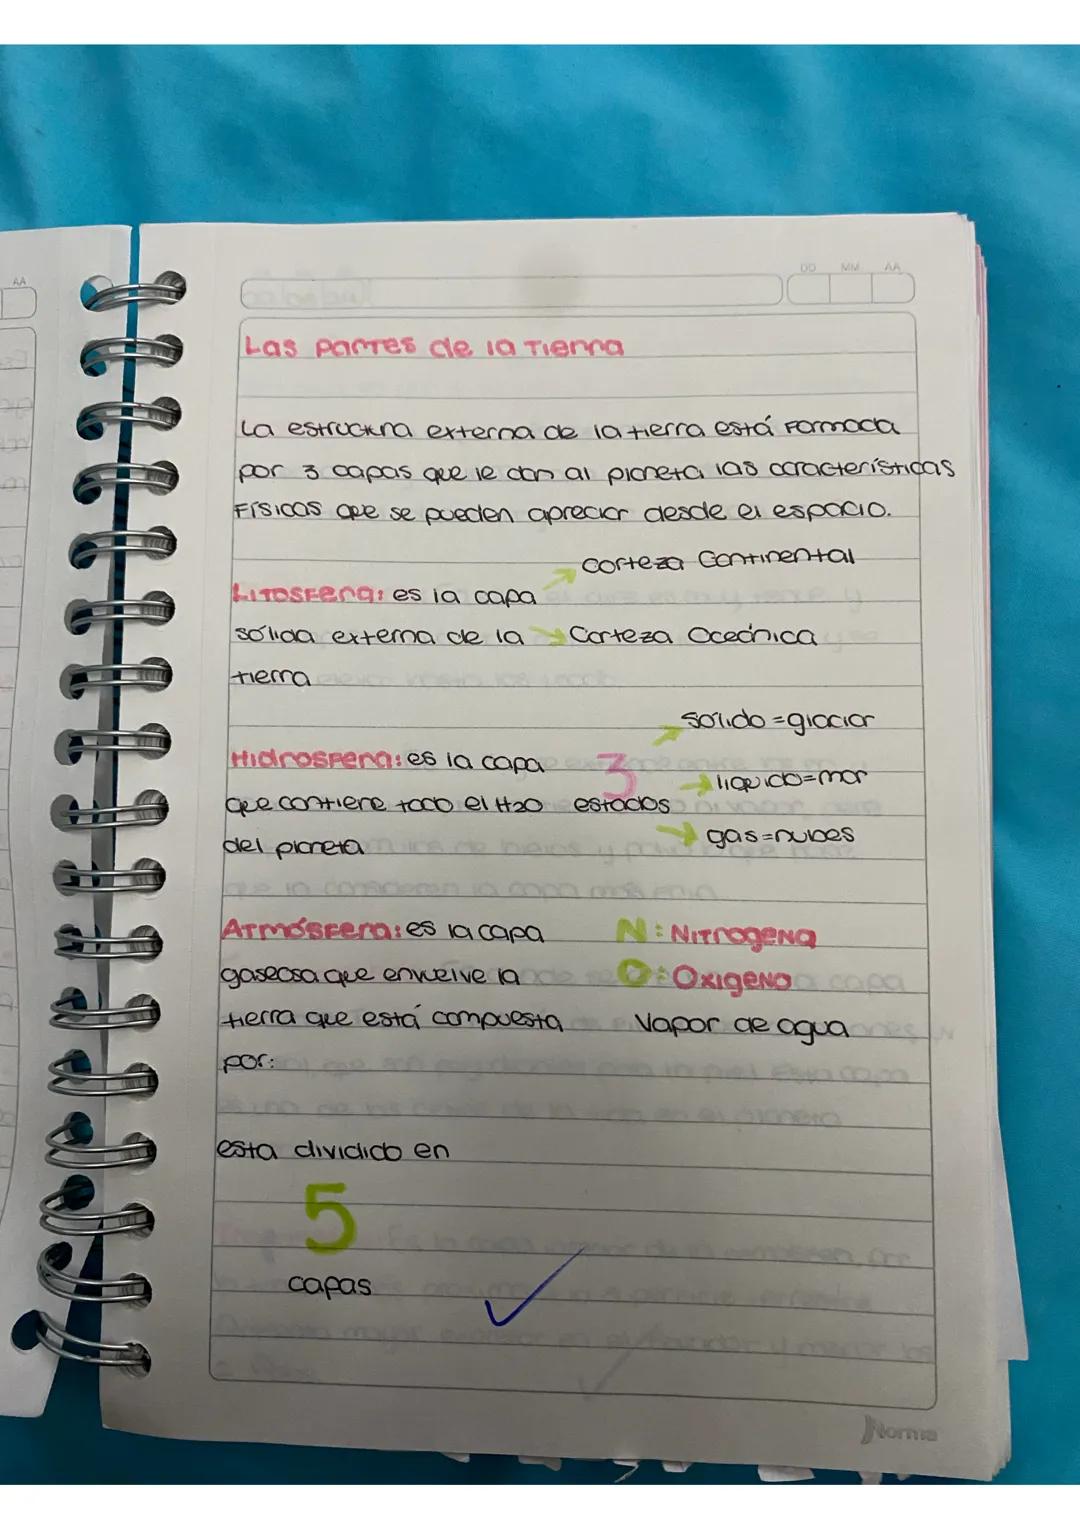 AA
DD MM AA
Las partes de la Tierra
La estructura externa de la tierra está Formada
por 3 capas que le dan al planeta las características
Físicas que se pueden apreciar desde el espacio.
Corteza Continental
Litosfera: es la capa
sólida externa de la Corteza Oceánica
tierra
sólido = glaciar
Hidrosfera: es la capa 3
líquido=mar
que contiene todo el H2O estados
gas=nubes
del planeta
Atmósfera: es la capa N: Nitrogeno
gaseosa que envuelve la O: Oxigeno
tierra que está compuesta Vapor de agua
por:
esta dividido en
5
capas
Norma